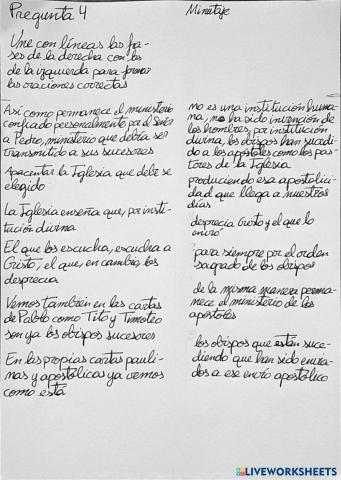 Pregunta 4
Minutaje
Une con líneas las fra-
ses de la derecha con las
de la izquierda para formar
las oraciones correctas
Así como permanece el ministerio
confiado personalmente por el Señor
a Pedro, ministerio que debía ser
transmitido a sus sucesores
Apacentar la Iglesia que debe ser
elegido
La Iglesia enseña que, por insti-
tución divina
El que los escucha, escucha a
Cristo, el que, en cambio, los
desprecia
Vemos también en las cartas
de Pablo como Tito y Timoteo
son ya los obispos sucesores
En las propias cartas pauli-
nas y apostólicas ya vemos
como está
no es una institución huma-
na, no ha sido invención de
los hombres, por institución
divina, los obispos han sucedi-
do a los apóstoles como los pas-
tores de la Iglesia
produciendo esa apostolici-
dad que llega a nuestros
días
desprecia Cristo y el que lo
envió
para siempre por el orden
sagrado de los obispos
de la misma manera perma-
nece el ministerio de los
apóstoles
los obispos que están suce-
diendo que han sido envia-
dos a ese envío apostólico
LIVEWORKSHEETS